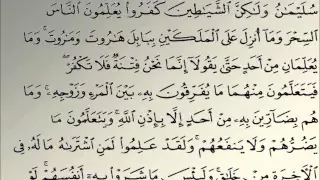 سُلَيْمَٰنُ وَلَٰكِنَّ ٱلشَّيَٰطِينَ كَفَرُوا۟ يُعَلِّمُونَ ٱلنَّاسَ
ٱلسِّحْرَ وَمَآ أُنزِلَ عَلَى ٱلْمَلَكَيْنِ بِبَابِلَ هَٰرُوتَ وَمَٰرُوتَ ۚ وَمَا
يُعَلِّمَانِ مِنْ أَحَدٍ حَتَّىٰ يَقُولَآ إِنَّمَا نَحْنُ فِتْنَةٌ فَلَا تَكْفُرْ ۖ
فَيَتَعَلَّمُونَ مِنْهُمَا مَا يُفَرِّقُونَ بِهِۦ بَيْنَ ٱلْمَرْءِ وَزَوْجِهِۦ ۚ وَمَا
هُم بِضَآرِّينَ بِهِۦ مِنْ أَحَدٍ إِلَّا بِإِذْنِ ٱللَّهِ ۚ وَيَتَعَلَّمُونَ مَا
يَضُرُّهُمْ وَلَا يَنفَعُهُمْ ۚ وَلَقَدْ عَلِمُوا۟ لَمَنِ ٱشْتَرَىٰهُ مَا لَهُۥ فِى
ٱلْءَاخِرَةِ مِنْ خَلَٰقٍ ۚ وَلَبِئْسَ مَا شَرَوْا۟ بِهِۦٓ أَنفُسَهُمْ ۚ لَوْ